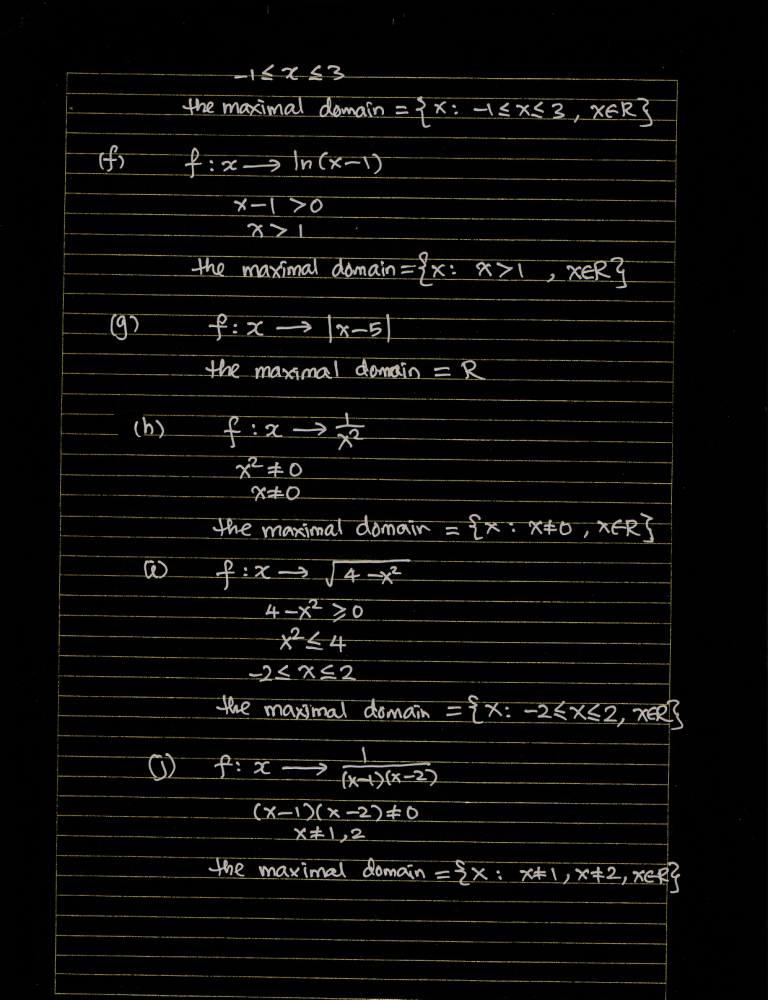 -1 ≤ x ≤ 3
the maximal domain = {x: -1 ≤ x ≤ 3, x∈R}
(f) f : x → ln(x-1)
x-1 > 0
x > 1
the maximal domain = {x: x > 1 , x∈R}
(g) f : x → |x-5|
the maximal domain = R
(h) f : x → 1/x²
x² ≠ 0
x ≠ 0
the maximal domain = {x : x ≠ 0 , x∈R}
(i) f : x → √(4-x²)
4-x² ≥ 0
x² ≤ 4
-2 ≤ x ≤ 2
the maximal domain = {x: -2 ≤ x ≤ 2, x∈R}
(j) f : x → 1/((x-1)(x-2))
(x-1)(x-2) ≠ 0
x ≠ 1,2
the maximal domain = {x : x ≠ 1, x ≠ 2, x∈R}